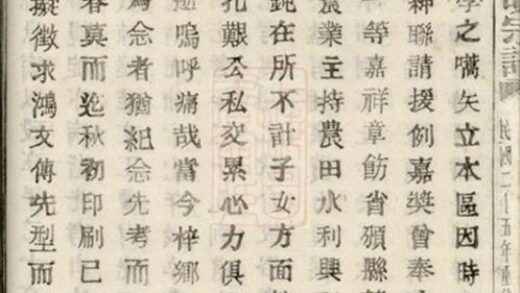 宗譜
民國二十五年重
學之嚆矢立本區因時
紳聯請援例嘉奬曾奉
一等嘉祥章飭省頒縣
農業主持農田水利興
鈍在所不計子女方面
孔艱公私交累心力俱
嗚呼痛哉當今梓鄉
為念者猶紀念先考而
春莫而迄秋初印刷已
擬徵求鴻文傳先型而